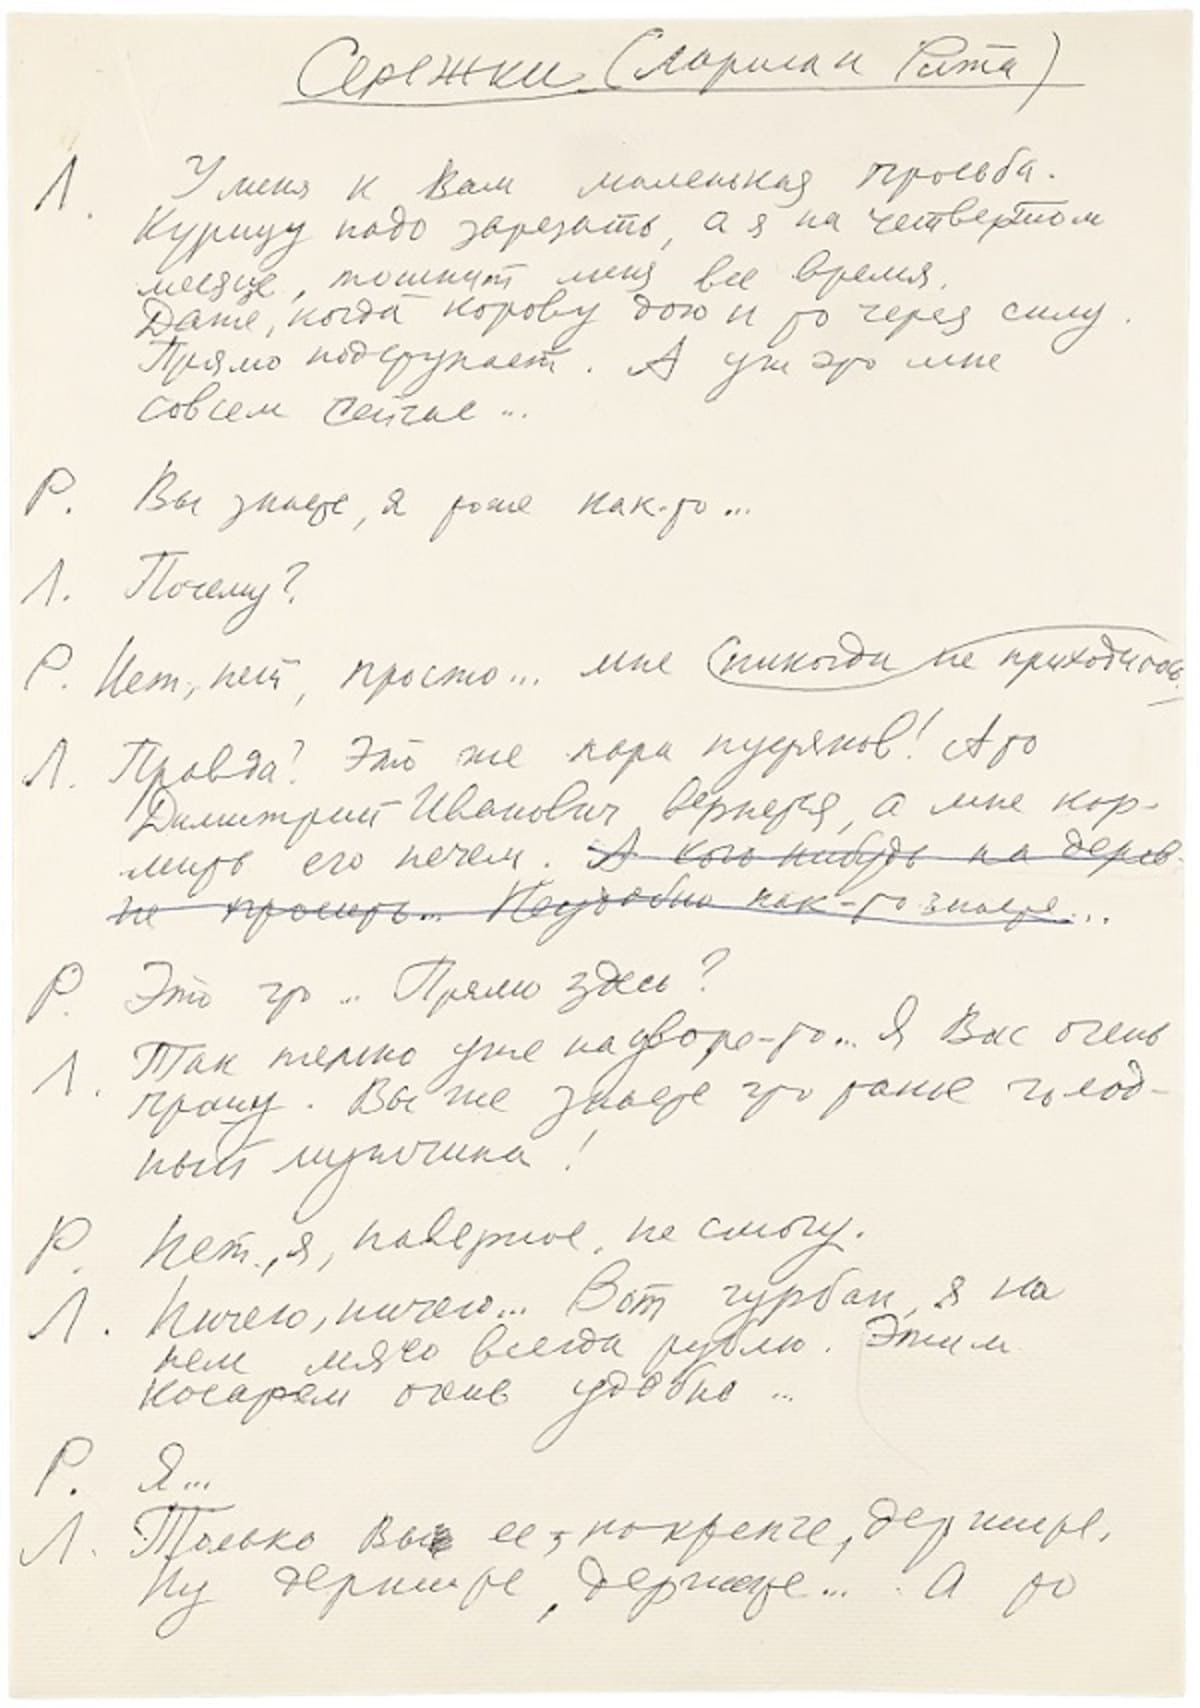 Сережки (Лариса и Рита)
Л. У меня к Вам маленькая просьба.
Курицу надо зарезать, а я на четвертом
месяце, тошнит меня все время.
Даже, когда корову дою и то через силу.
Прямо подступает. А уж это мне
совсем сейчас...
Р. Вы знаете, я тоже как-то...
Л. Почему?
Р. Нет, нет, просто... мне никогда не приходилось.
Л. Правда? Это же пара пустяков! А то
Димитрий Иванович вернется, а мне кор-
мить его нечем. А кого нибудь на дерев-
не просить... Неудобно как-то знаете...
Р. Это что... Прямо здесь?
Л. Так темно уже на дворе-то... Я Вас очень
прошу. Вы же знаете что такое голод-
ный мужчина!
Р. Нет, я, наверное, не смогу.
Л. Ничего, ничего... Вот чурбан, я на
нем мясо всегда рублю. Этим
косарем очень удобно...
Р. Я...
Л. Только Вы ее, покрепче, держите.
Ну держите, держите... А то